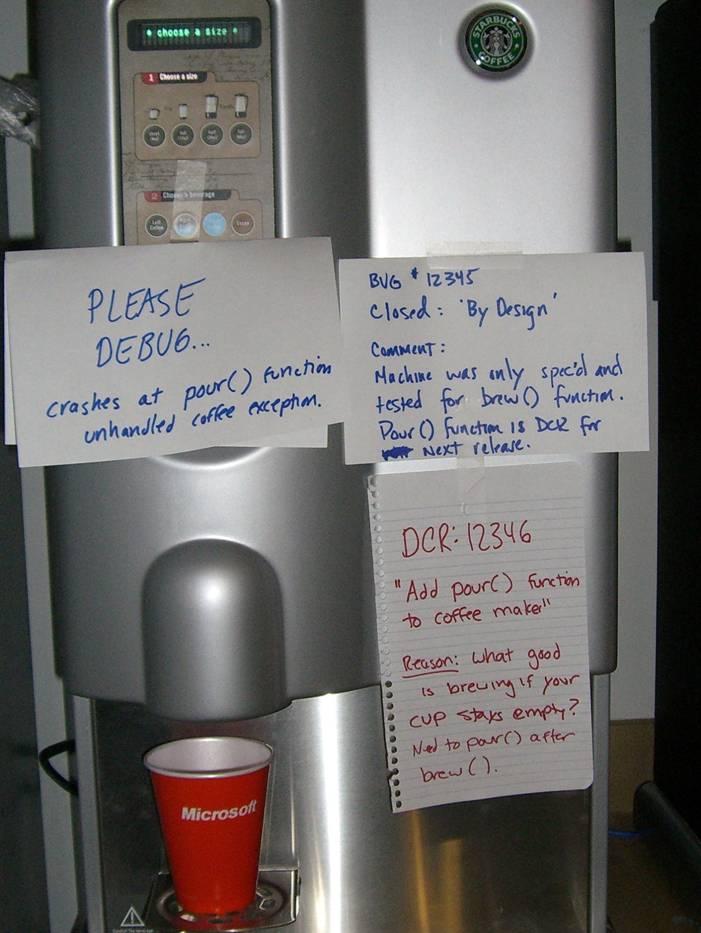 * choose a size *
1 Choose a size
STARBUCKS
COFFEE
2 Choose a beverage
PLEASE
DEBUG...
crashes at pour() function
unhandled coffee exception.
BUG # 12345
Closed: 'By Design'
Comment:
Machine was only spec'd and
tested for brew() function.
Pour() function is DCR for
Next release.
DCR: 12346
"Add pour() function
to coffee maker"
Reason: what good
is brewing if your
cup stays empty?
Need to pour() after
brew().
Microsoft